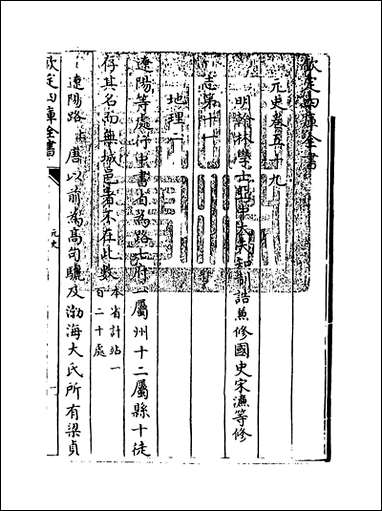 欽定四庫全書
元史卷五十九
明翰林學士亞中大夫知制誥兼修國史宋濂等修
志第十一
地理二
遼陽等處行中書省為路七府一屬州十二屬縣十徒
存其名而無城邑者不在此數本省計站一百二十處
遼陽路 唐以前為高句驪及渤海大氏所有梁貞
欽定四庫全書 元史 一